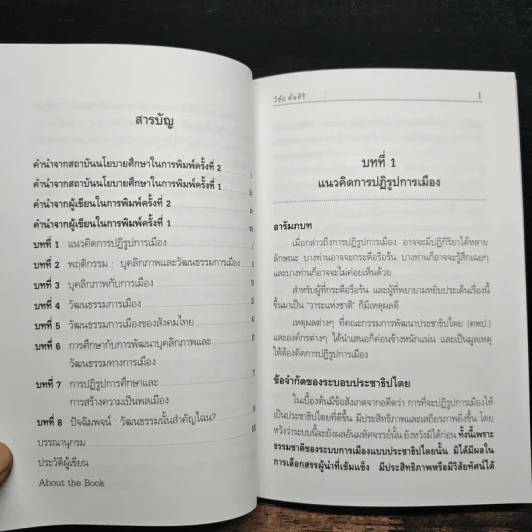 สารบัญ
คำนำจากสถาบันนโยบายศึกษาในการพิมพ์ครั้งที่ 2
คำนำจากสถาบันนโยบายศึกษาในการพิมพ์ครั้งที่ 1
คำนำจากผู้เขียนในการพิมพ์ครั้งที่ 2
คำนำจากผู้เขียนในการพิมพ์ครั้งที่ 1
บทที่ 1 แนวคิดการปฏิรูปการเมือง
บทที่ 2 พฤติกรรม : บุคลิกภาพและวัฒนธรรมการเมือง
บทที่ 3 บุคลิกภาพกับการเมือง
บทที่ 4 วัฒนธรรมการเมือง
บทที่ 5 วัฒนธรรมการเมืองของสังคมไทย
บทที่ 6 การศึกษากับการพัฒนาบุคลิกภาพและ
วัฒนธรรมทางการเมือง
บทที่ 7 การปฏิรูปการศึกษาและ
การสร้างความเป็นพลเมือง
บทที่ 8 ปัจฉิมพจน์ : วัฒนธรรมนั้นสำคัญไฉน?
บรรณานุกรม
ประวัติผู้เขียน
About the Book
วิชัย ตันศิริ 1
บทที่ 1
แนวคิดการปฏิรูปการเมือง
อารัมภบท
เมื่อกล่าวถึงการปฏิรูปการเมือง อาจจะมีปฏิกิริยาได้หลาย
ลักษณะ บางท่านอาจจะกระตือรือร้น บางท่านก็อาจจะรู้สึกเฉยๆ
และบางท่านก็อาจจะไม่ค่อยเห็นด้วย
สำหรับผู้ที่กระตือรือร้น และผู้ที่พยายามหยิบประเด็นเรื่องนี้
ขึ้นมาเป็น "วาระแห่งชาติ" ก็มีเหตุผลดี
เหตุผลต่างๆ ที่คณะกรรมการพัฒนาประชาธิปไตย (คพป.)
และองค์กรต่างๆ ได้นำเสนอก็ค่อนข้างหนักแน่น และเป็นมูลเหตุ
ให้ต้องคิดการปฏิรูปการเมือง
ข้อจำกัดของระบอบประชาธิปไตย
ในเบื้องต้นมีข้อสังเกตจากอดีตว่า การที่จะปฏิรูปการเมืองให้
เป็นประชาธิปไตยที่ดีขึ้น มีประสิทธิภาพและเสถียรภาพยิ่งขึ้น โดย
หวังว่าระบบนี้จะยังผลอันมหัศจรรย์นั้น ยังหวังมิได้ก่อน ทั้งนี้เพราะ
ธรรมชาติของระบบการเมืองแบบประชาธิปไตยนั้น มิได้มีผลใน
การเลือกสรรผู้นำที่เข้มแข็ง มีประสิทธิภาพหรือมีวิสัยทัศน์ได้